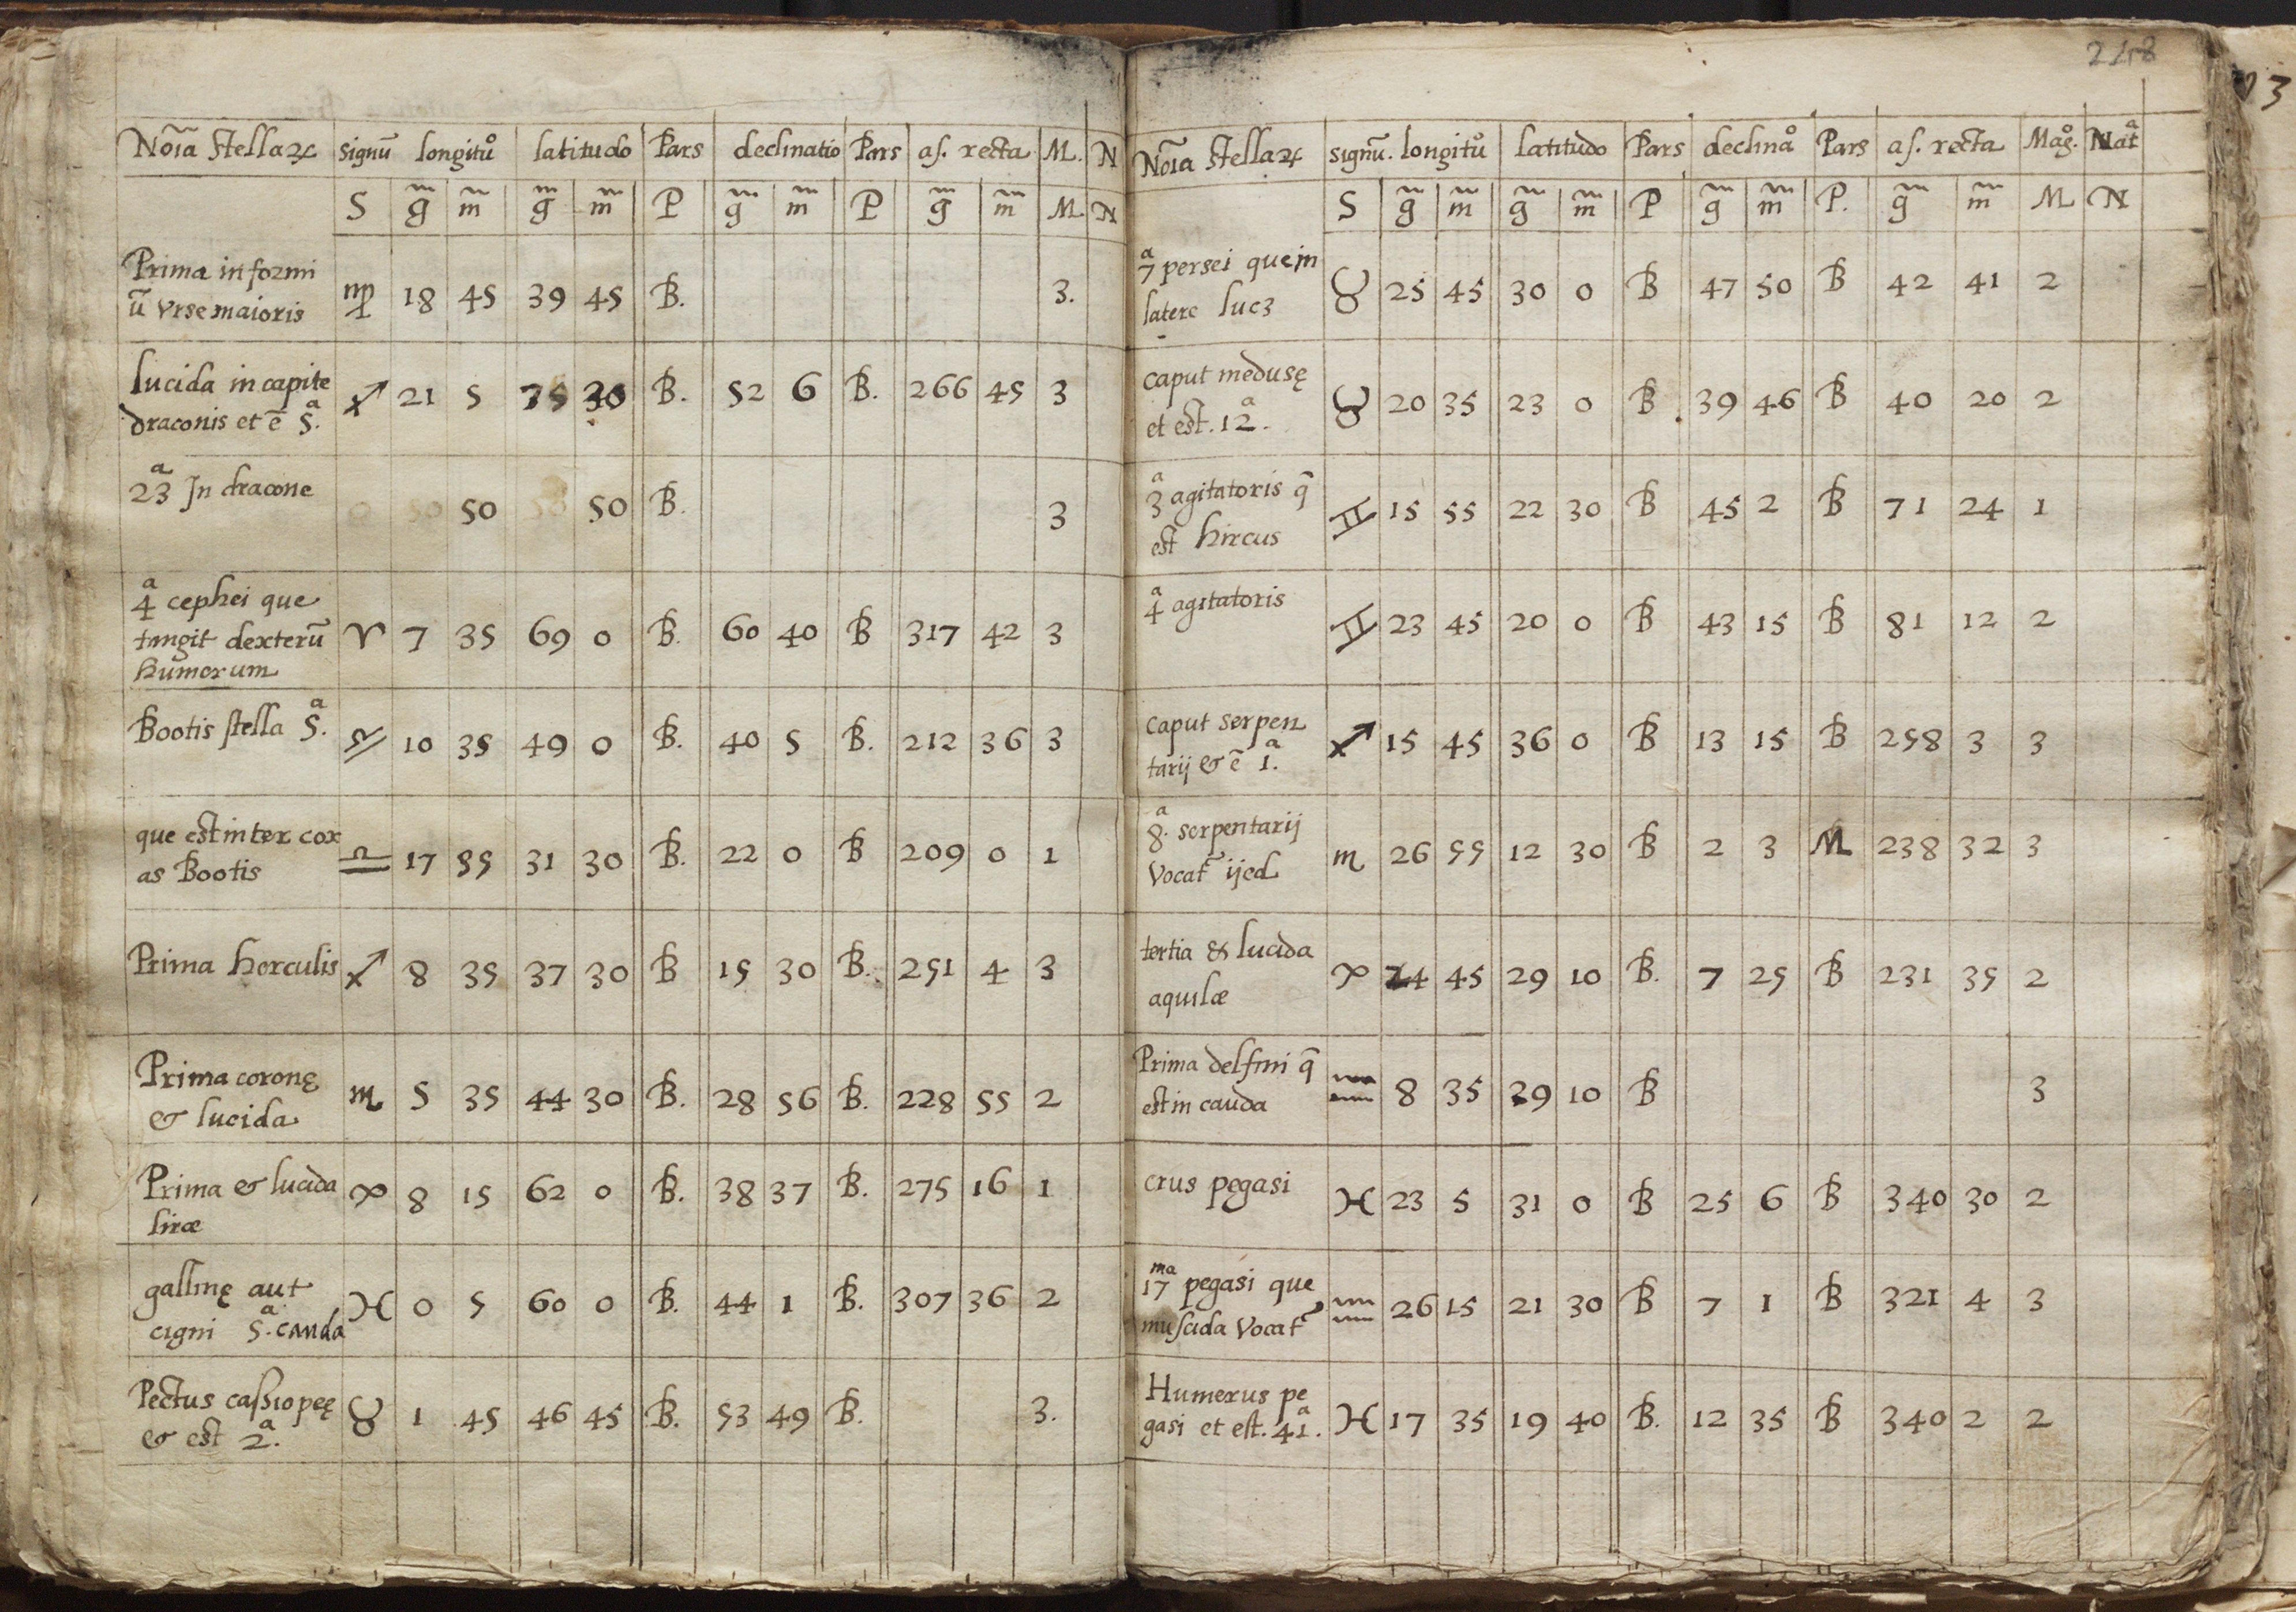 Nõia Stellaꝝ signũ longitu° latitudo Pars declinatio Pars as. recta M. N
S g̃ m̃ g̃ m̃ P g̃ m̃ P g̃ m̃ M N
Prima informi
ũ Vrse maioris ♍ 18 45 39 45 B. 3.
lucida in capite
draconis et ẽ 5ª. ♐ 21 5 75 30 B. 52 6 B. 266 45 3
23ª In dracone 50 50 B. 3
4ª cephei que
tangit dexterũ ♈ 7 35 69 0 B. 60 40 B 317 42 3
humerum
Bootis stella 5ª. ♎ 10 35 49 0 B. 40 5 B. 212 36 3
que est inter cox
as Bootis ♎ 17 55 31 30 B. 22 0 B 209 0 1
Prima herculis ♐ 8 35 37 30 B 15 30 B. 251 4 3
Prima coronę
& lucida ♏ 5 35 44 30 B. 28 56 B. 228 55 2
Prima & lucida
liræ ♑ 8 15 62 0 B. 38 37 B. 275 16 1
gallinę aut
cigni 5ª. cauda ♓ 0 5 60 0 B. 44 1 B. 307 36 2
Pectus cassiopeę
& est 2ª. ♉ 1 45 46 45 B. 53 49 B. 3.
248
3
Nõia Stellaꝝ signũ. longitu° latitudo Pars declina° Pars as. recta Mag°. Natª
S g̃ m̃ g̃ m̃ P g̃ m̃ P. g̃ m̃ M N
7ª persei que in
latere lucꝫ ♉ 25 45 30 0 B 47 50 B 42 41 2
caput medusę
et est. 12ª. ♉ 20 35 23 0 B 39 46 B 40 20 2
3ª agitatoris q̃
est hircus ♊ 15 55 22 30 B 45 2 B 71 24 1
4ª agitatoris ♊ 23 45 20 0 B 43 15 B 81 12 2
caput serpen
tarij & ẽ 1ª. ♐ 15 45 36 0 B 13 15 B 258 3 3
8ª. serpentarij
Vocat̃ ijed ♏ 26 55 12 30 B 2 3 M 238 32 3
tertia & lucida
aquilæ ♑ 24 45 29 10 B. 7 25 B 231 35 2
Prima delfini q̃
est in cauda ♒ 8 35 29 10 B 3
crus pegasi ♓ 23 5 31 0 B 25 6 B 340 30 2
17ma pegasi que
muscida Vocat̃ ♒ 26 15 21 30 B 7 1 B 321 4 3
Humerus pe
gasi et est. 41ª. ♓ 17 35 19 40 B. 12 35 B 340 2 2